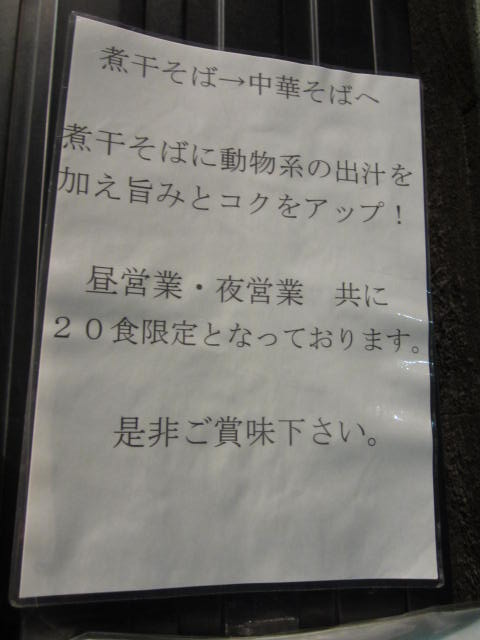 煮干そば→中華そばへ
煮干そばに動物系の出汁を
加え旨みとコクをアップ！
昼営業・夜営業　共に
２０食限定となっております。
是非ご賞味下さい。